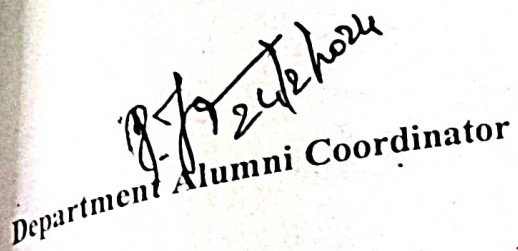 24/2/2024
Department Alumni Coordinator